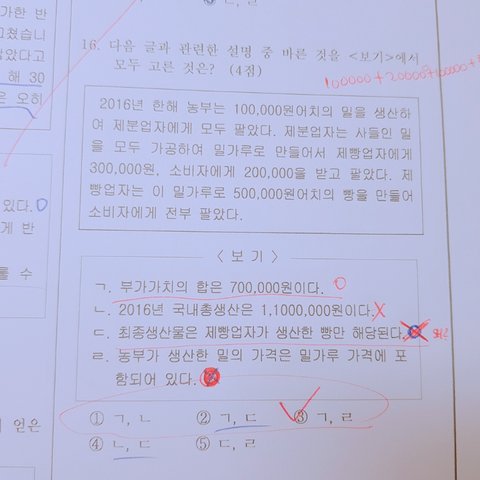 가한 반
고쳤습니
않았다고
해 30
은 오히
있다.
게 반
를 수
이 얻은
16. 다음 글과 관련한 설명 중 바른 것을 <보기>에서
모두 고른 것은? (4점)
2016년 한해 농부는 100,000원어치의 밀을 생산하
여 제분업자에게 모두 팔았다. 제분업자는 사들인 밀
을 모두 가공하여 밀가루로 만들어서 제빵업자에게
300,000원, 소비자에게 200,000을 받고 팔았다. 제
빵업자는 이 밀가루로 500,000원어치의 빵을 만들어
소비자에게 전부 팔았다.
< 보 기 >
ㄱ. 부가가치의 합은 700,000원이다.
ㄴ. 2016년 국내총생산은 1,1000,000원이다.
ㄷ. 최종생산물은 제빵업자가 생산한 빵만 해당된다.
ㄹ. 농부가 생산한 밀의 가격은 밀가루 가격에 포
함되어 있다.
① ㄱ, ㄴ ② ㄱ, ㄷ ③ ㄱ, ㄹ
④ ㄴ, ㄷ ⑤ ㄷ, ㄹ